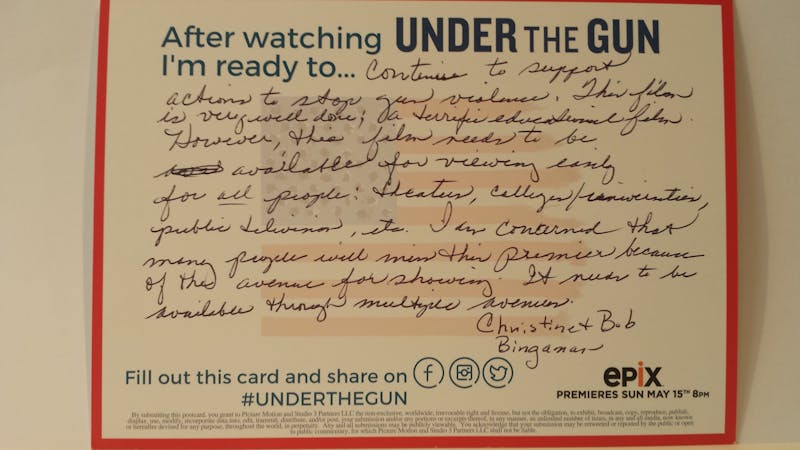 After watching UNDER THE GUN
I'm ready to... Continue to support
actions to stop gun violence. This film
is very well done; a terrific educational film.
However, this film needs to be
available for viewing easily
for all people: theaters, colleges/universities,
public television, etc. I am concerned that
many people will miss this premier because
of the avenue for showing. It needs to be
available through multiple avenues.
Christine & Bob
Bingaman
Fill out this card and share on
#UNDERTHEGUN
epix
PREMIERES SUN MAY 15TH 8PM
By submitting this postcard, you grant to Picture Motion and Studio 3 Partners LLC the non-exclusive, worldwide, irrevocable right and license, but not the obligation, to exhibit, broadcast, copy, reproduce, publish,
display, use, modify, incorporate data into, edit, transmit, distribute, and/or post, your submission and/or any portions or excerpts thereof, in any manner, an unlimited number of times, in any and all media, now known
or hereafter devised for any purpose, throughout the world, in perpetuity. Any and all submissions may be publicly viewable. You acknowledge that your submission may be retweeted or reposted by the public or open
to public commentary, for which Picture Motion and Studio 3 Partners LLC shall not be liable.